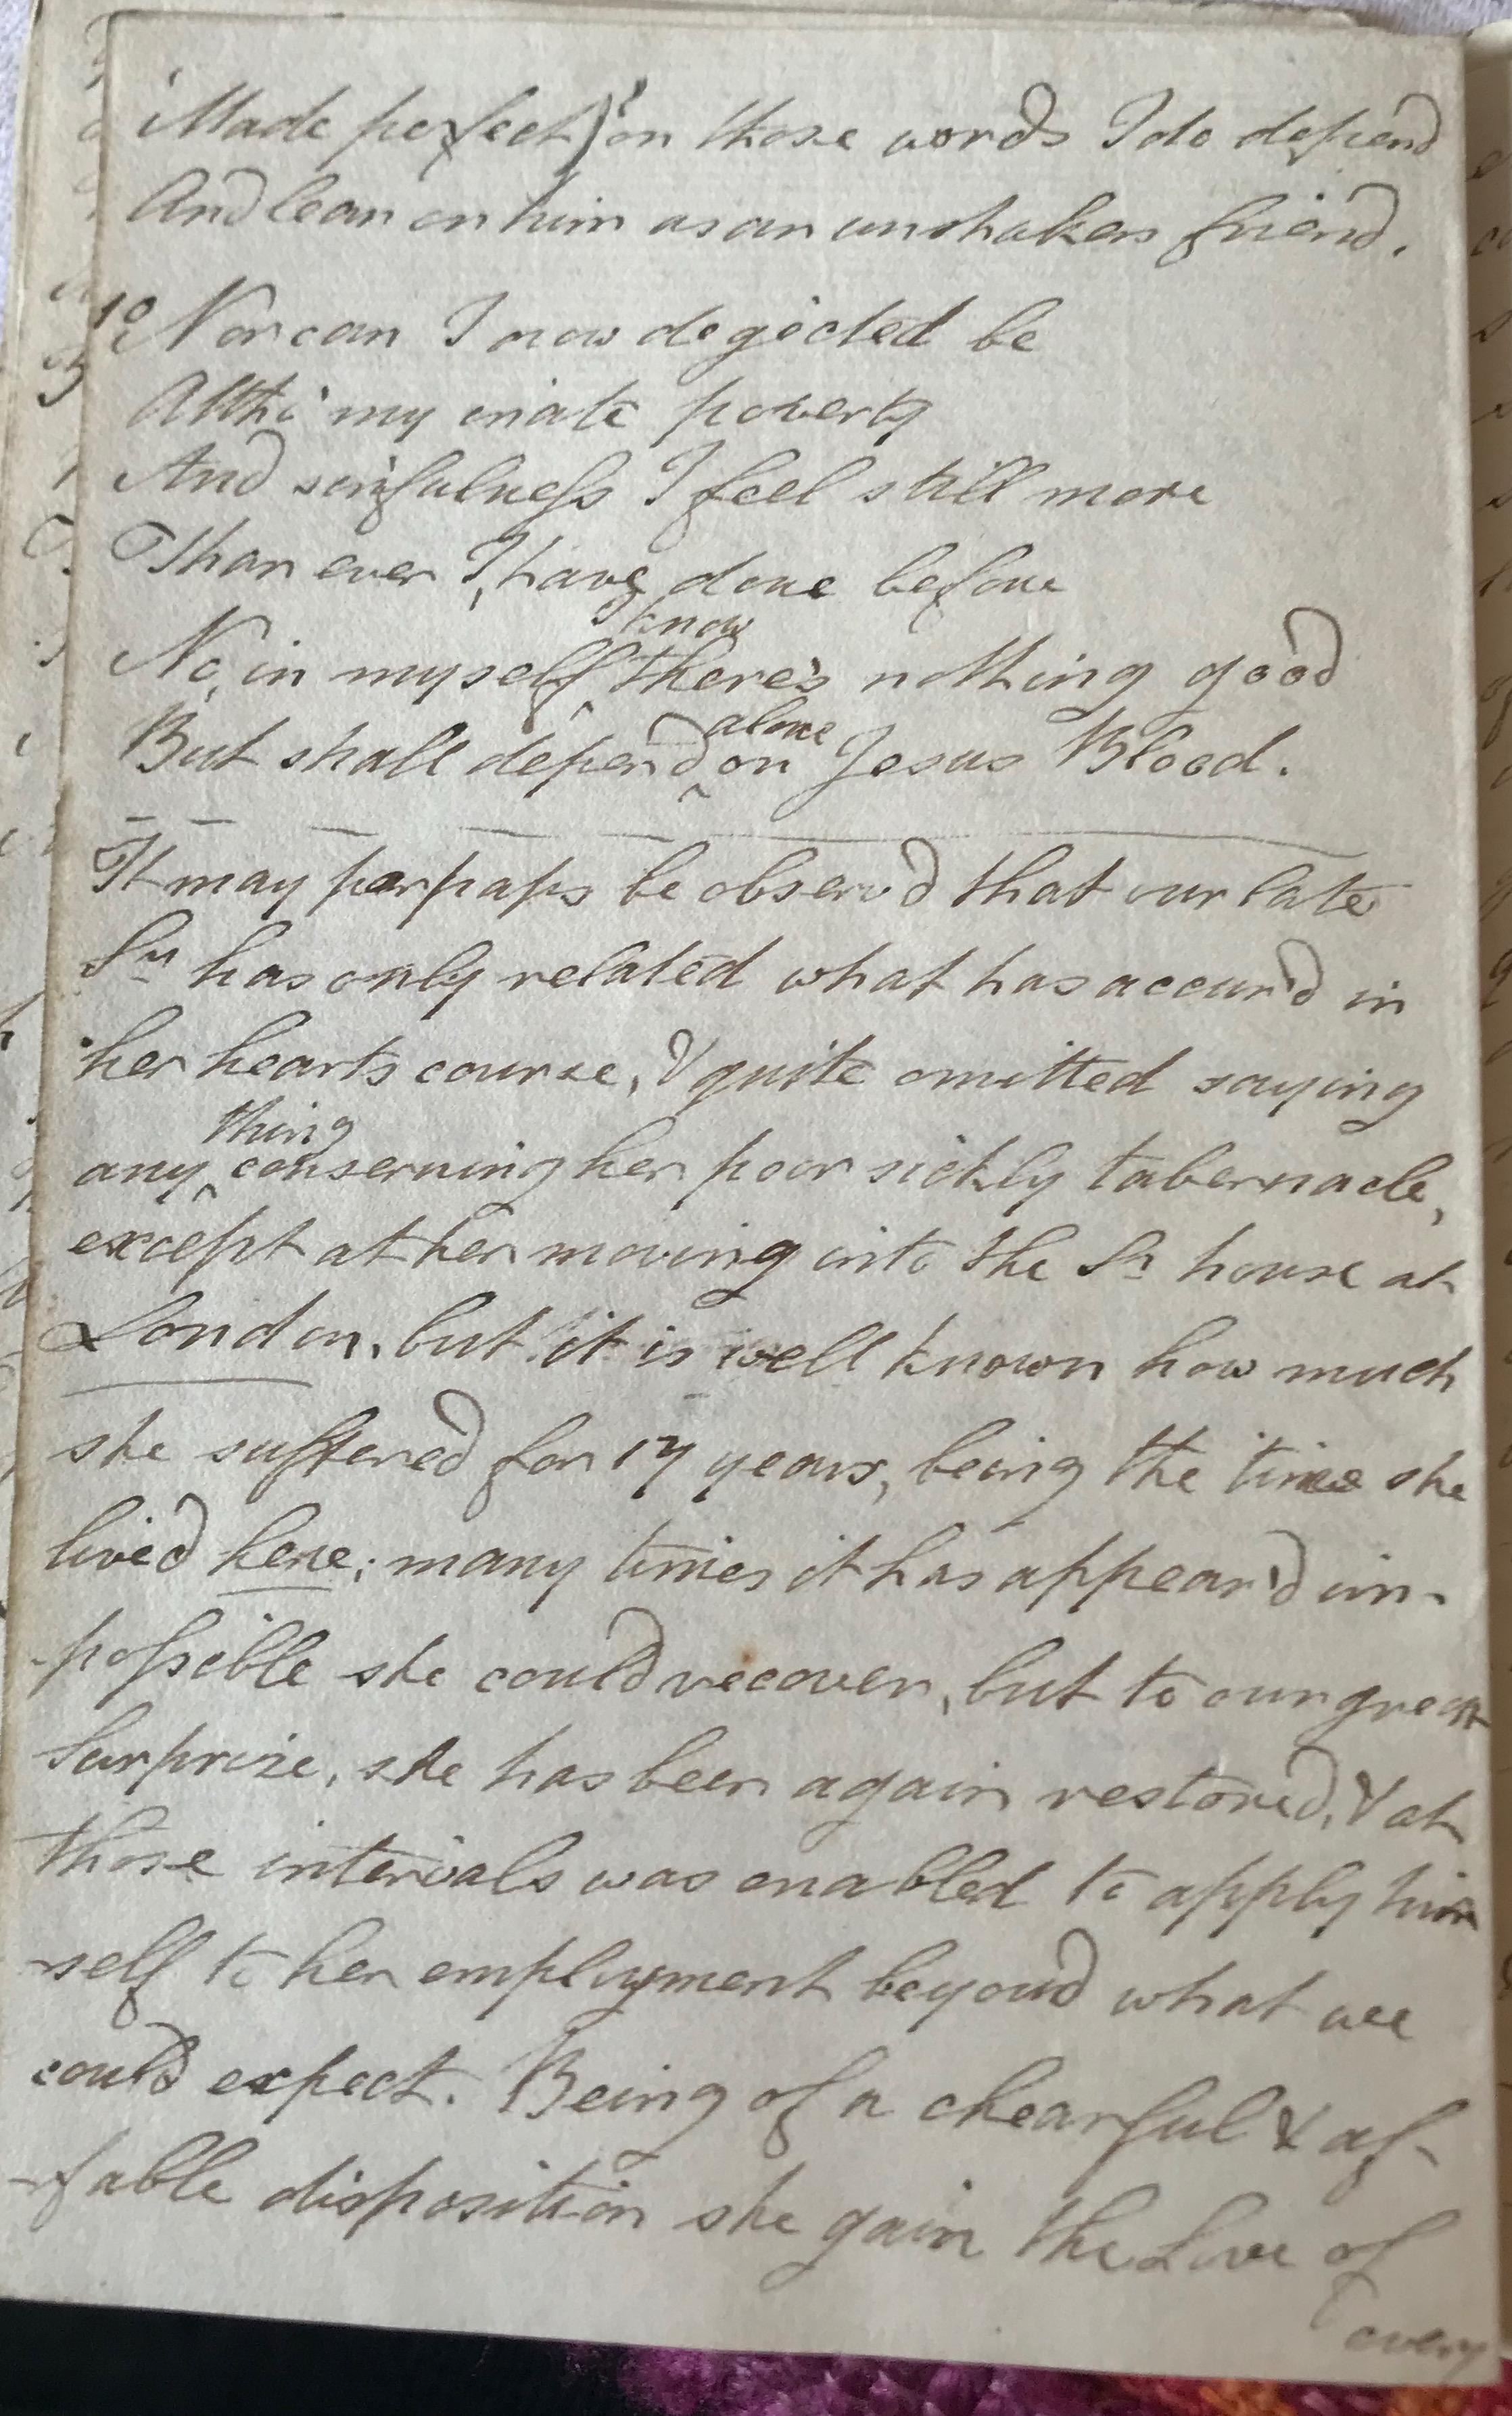 'Made perfect)' on those words I do depend
And lean on him as an unshaken friend.
10 Nor can I now degected be
Altho' my inate poverty
And sinfulness I feel still more
Than ever I, have, done before
I know
No, in myself ^ there's nothing good
alone
But shall depend ^ on Jesus Blood.
It may perhaps be observ'd that our late
Sr. has only related what has accur'd in
her hearts course, & quite omitted saying
thing
any ^ conserning her poor sickly tabernacle,
except at her moving into the Sr. house at
London, but it is well known how much
she suffered for 17 years, being the time she
lived here; many times it has appear'd im-
-possible she could recover, but to our great
Surprize, she has been again restored, & at
those intervals was enabled to apply him
-self to her employment beyond what we
could expect. Being of a chearful & af-
-fable disposition she gain the Love of
every